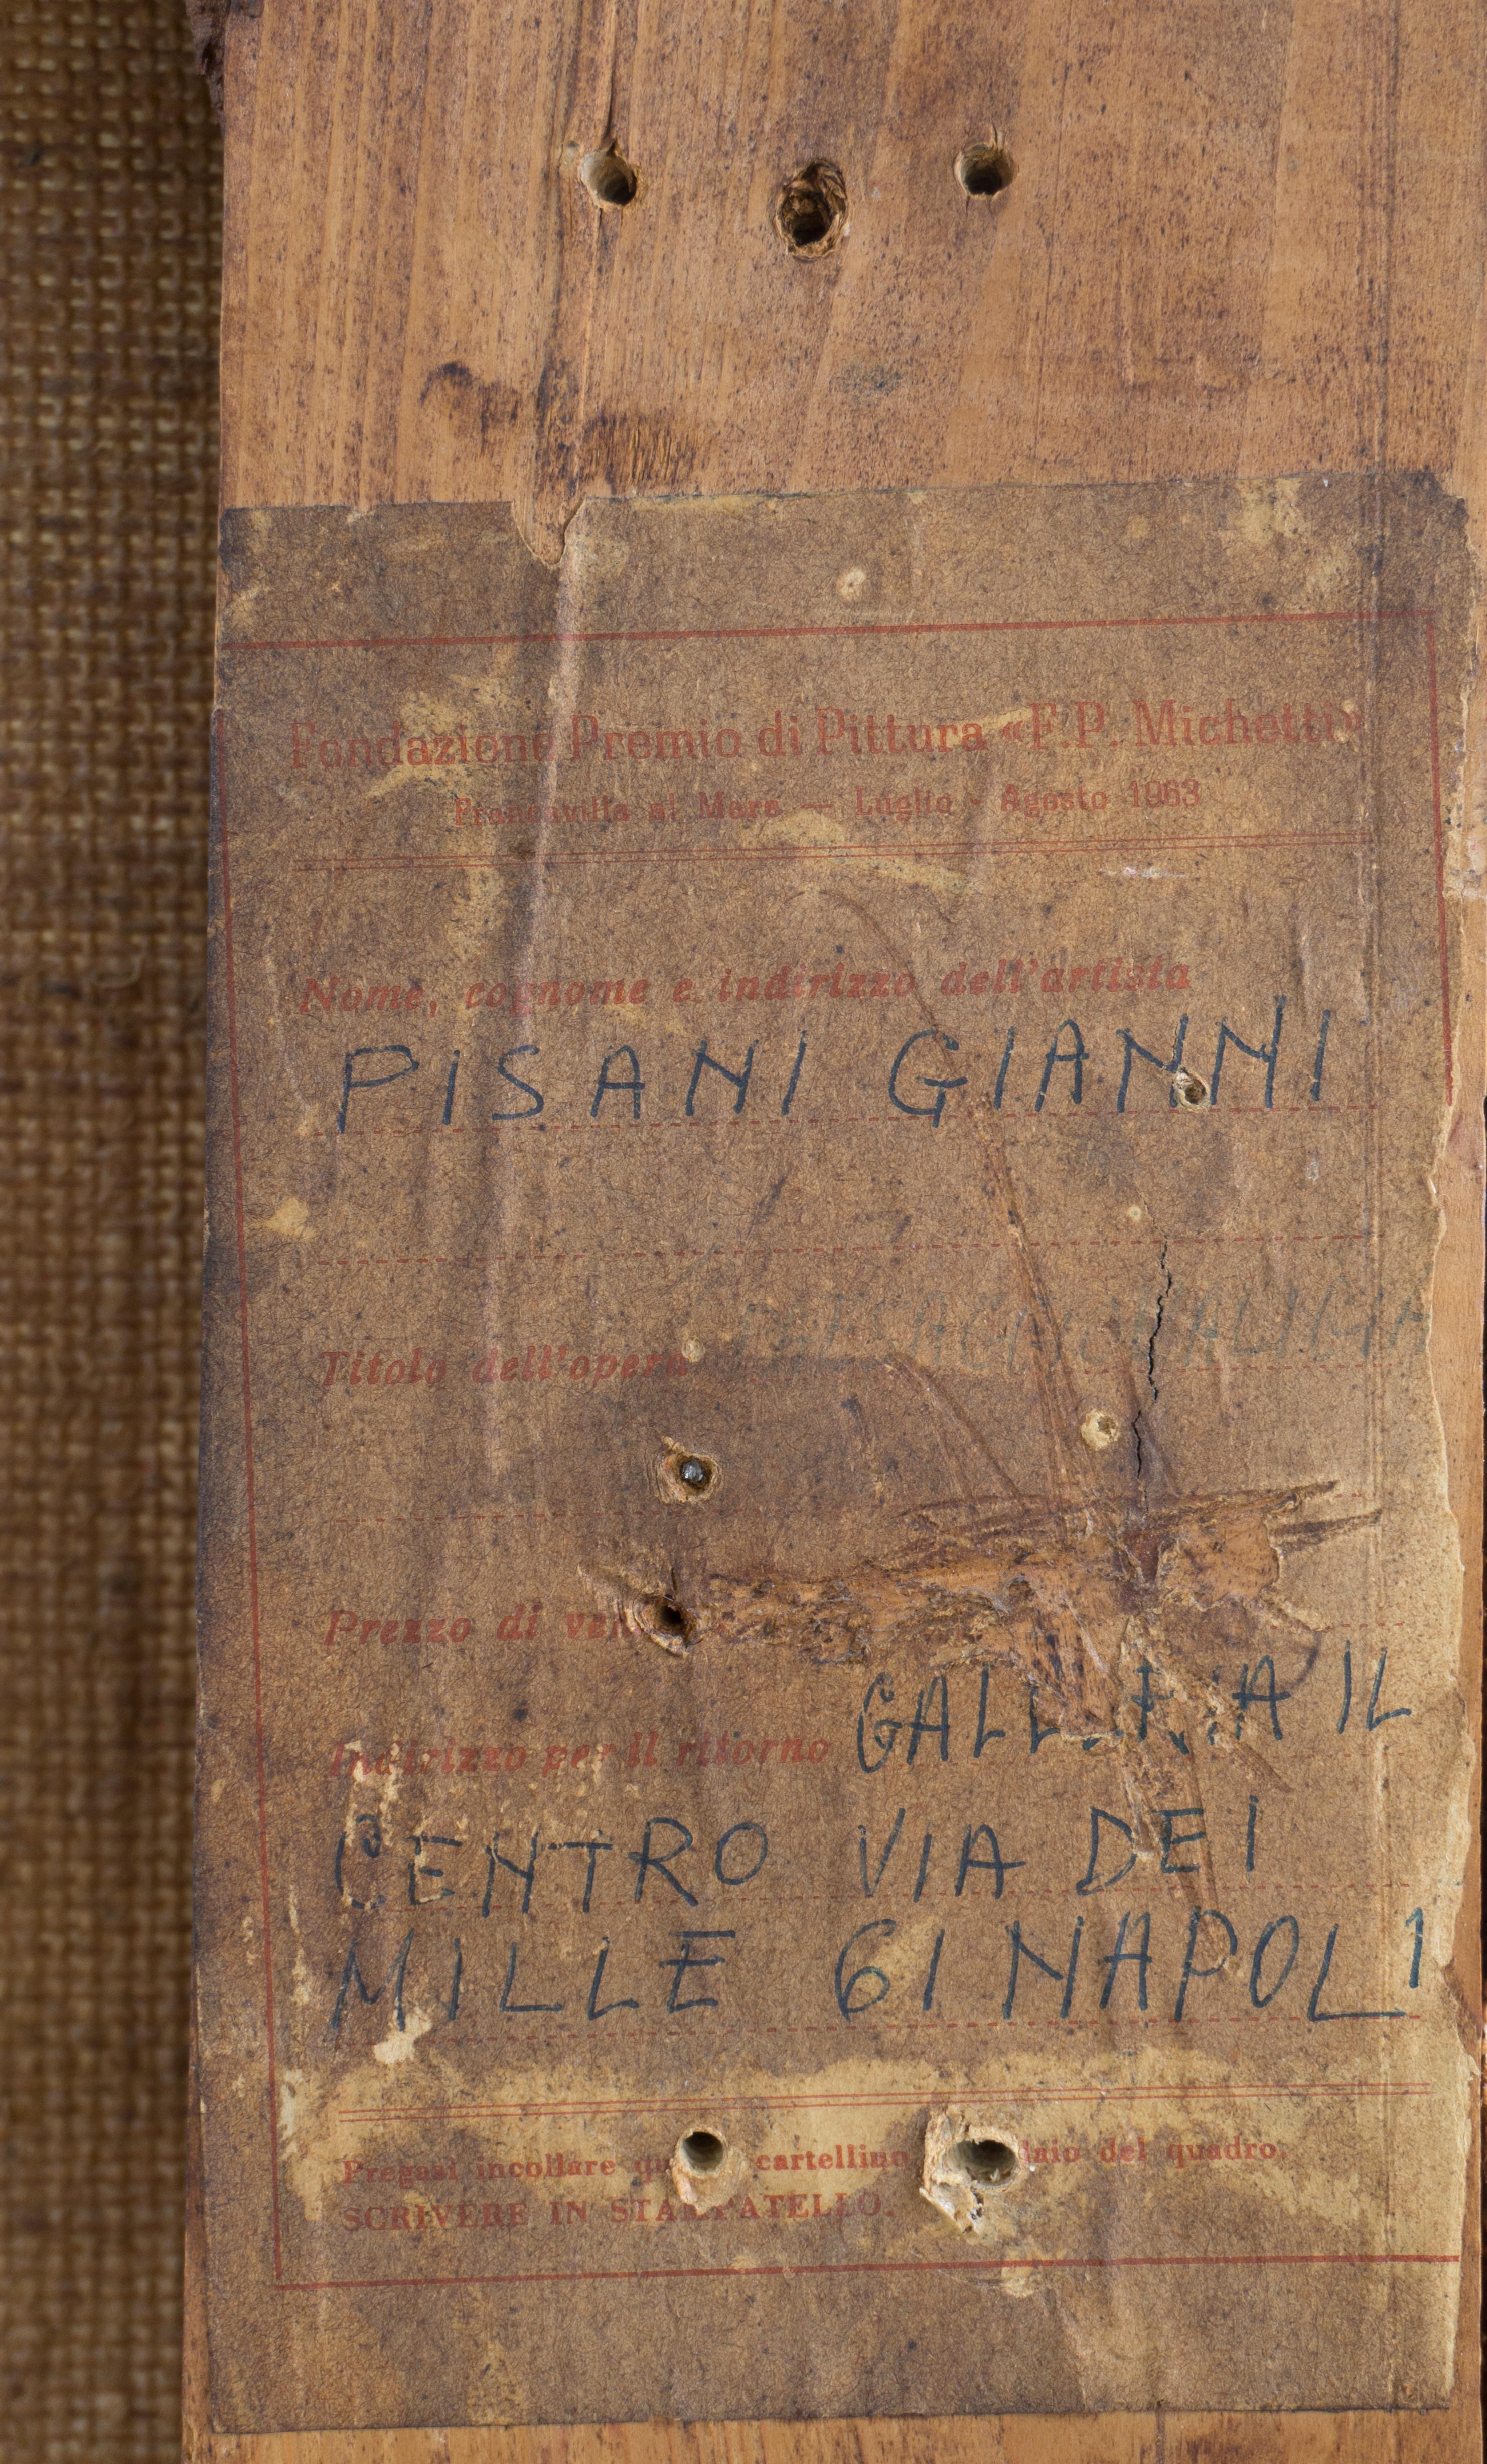 Fondazione Premio di Pittura «F.P. Michetti»
Francavilla al Mare — Luglio - Agosto 1963
Nome, cognome e indirizzo dell'artista
PISANI GIANNI
Titolo dell'opera
Prezzo di
Indirizzo per il ritorno GALLERIA IL
CENTRO VIA DEI
MILLE 61 NAPOLI
Pregasi incollare cartellino del quadro.
SCRIVERE IN STAMPATELLO.